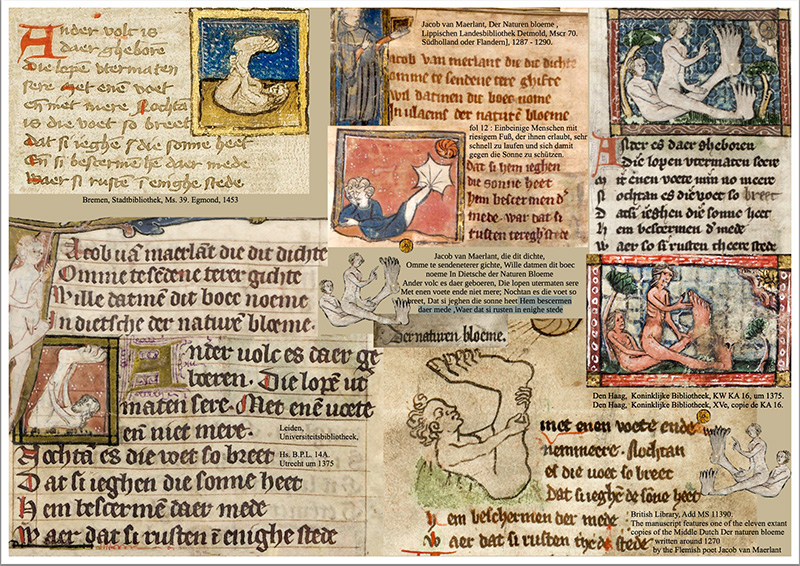 Ander volc is
daer ghebore
die lopē vtermaten
sere Met enē voet
en met mere Nochtā
is die voet so breet
Dat si ieghē s die sonne heet
En si beschermē hē daer mede
Waer si rustē ī enighe stede
Bremen, Stadtbibliothek, Ms. 39. Egmond, 1453
Jacob van Maerlant, Der Naturen bloeme ,
Lippischen Landesbibliothek Detmold, Mscr 70.
Südholland oder Flandern], 1287 - 1290.
Jacob van merlant die dit dichte
omme te sendene tere ghifte
wil datmen dit boec nome
In vlaems der naturē bloeme
fol 12 : Einbeinige Menschen mit
riesigem Fuß, der ihnen erlaubt, sehr
schnell zu laufen und sich damit
gegen die Sonne zu schützen.
dat si hem ieghen
die sonne heet
hem bescermen
mede war dat si
rusten
Jacob van Maerlant, die dit dichte,
Omme te sendeneterer gichte, Wille datmen dit boec
noeme In Dietsche der Naturen Bloeme
Ander volc es daer geboeren, Die lopen utermaten sere
Met enen voete ende niet mere; Nochtan es die voet so
breet, Dat si jeghen die sonne heet Hem bescermen
daer mede ,Waer dat si rusten in enighe stede
Aster es daer gheboren
Die lopen vtermaten seere
met enen voete min no meere
Nochtan es die voet so breet
Datsi ieghen die sonne heet
Hem beschermen d'mede
Waer so si rusten
Den Haag, Koninklijke Bibliotheek, KW KA 16, um 1375.
Den Haag, Koninklijke Bibliotheek, XVe, copie de KA 16.
Jacob uā maerlāt die dit dichte
Omme te sēdene terer gichte
Wille datmē dit boec noeme
In dietsche der naturē bloeme.
Ander volc es daer ge
boeren. Die lopē ut
maten sere. Met enē voete
en niet mere.
Nochtā es die voet so breet
Dat si ieghen die sonne heet
Hem bescermē daer mede
Waer dat si rusten ī enighe stede
Leiden,
Universiteitsbibliotheek,
Hs. B.P.L. 14A.
Utrecht um 1375
Der naturen bloeme.
met enen voete ende
nemmeere. Nochtan
es die voet so breet
Dat si ieghē de sōne heet
hem beschermen der mede
waer dat si rusten stede
British Library, Add MS 11390.
The manuscript features one of the eleven extant
copies of the Middle Dutch Der naturen bloeme
written around 1270
by the Flemish poet Jacob van Maerlant